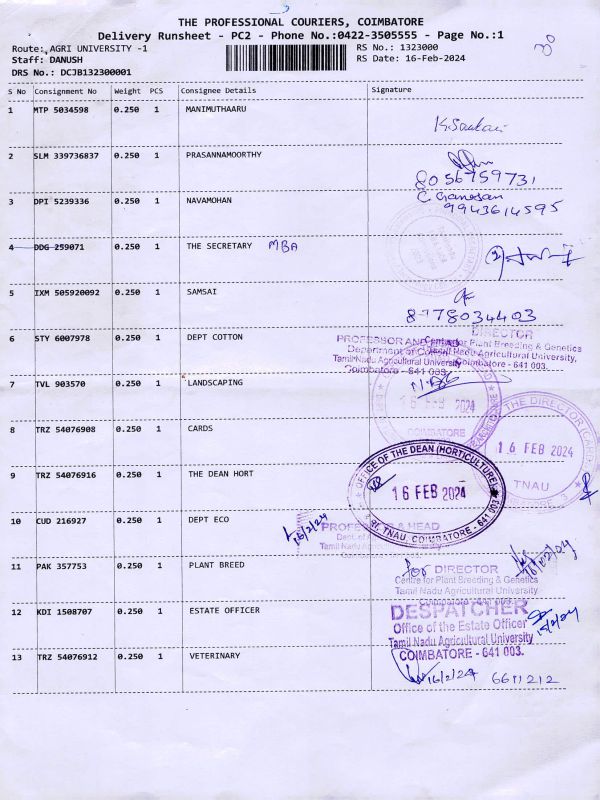 THE PROFESSIONAL COURIERS, COIMBATORE
Delivery Runsheet - PC2 - Phone No.:0422-3505555 - Page No.:1
Route: AGRI UNIVERSITY -1
RS No.: 1323000
Staff: DANUSH
RS Date: 16-Feb-2024
DRS No.: DCJB132300001
S No Consignment No Weight PCS Consignee Details Signature
1 MTP 5034598 0.250 1 MANIMUTHAARU
2 SLM 339736837 0.250 1 PRASANNAMOORTHY
8056759731
3 DPI 5239336 0.250 1 NAVAMOHAN
C Ganesan
9943614595
4 DDG 259071 0.250 1 THE SECRETARY MBA
5 IXM 505920092 0.250 1 SAMSAI
8778034403
6 STY 6007978 0.250 1 DEPT COTTON
DIRECTOR
PROFESSOR AND HEAD
Centre for Plant Breeding & Genetics
Department of Cotton
Tamil Nadu Agricultural University,
Tamil Nadu Agricultural University
Coimbatore - 641 003.
Coimbatore - 641 003.
7 TVL 903570 0.250 1 LANDSCAPING
16 FEB 2024
COIMBATORE
8 TRZ 54076908 0.250 1 CARDS
THE DIRECTOR
16 FEB 2024
TNAU
9 TRZ 54076916 0.250 1 THE DEAN HORT
OFFICE OF THE DEAN (HORTICULTURE)
16 FEB 2024
TNAU, COIMBATORE - 641 003
10 CUD 216927 0.250 1 DEPT ECO
16/2/24
PROFESSOR & HEAD
11 PAK 357753 0.250 1 PLANT BREED
for DIRECTOR
Centre for Plant Breeding & Genetics
Tamil Nadu Agricultural University
Coimbatore - 641 003
12 KDI 1508707 0.250 1 ESTATE OFFICER
DESPATCHER
Office of the Estate Officer
Tamil Nadu Agricultural University
COIMBATORE - 641 003.
13 TRZ 54076912 0.250 1 VETERINARY
16/2/24 6611212